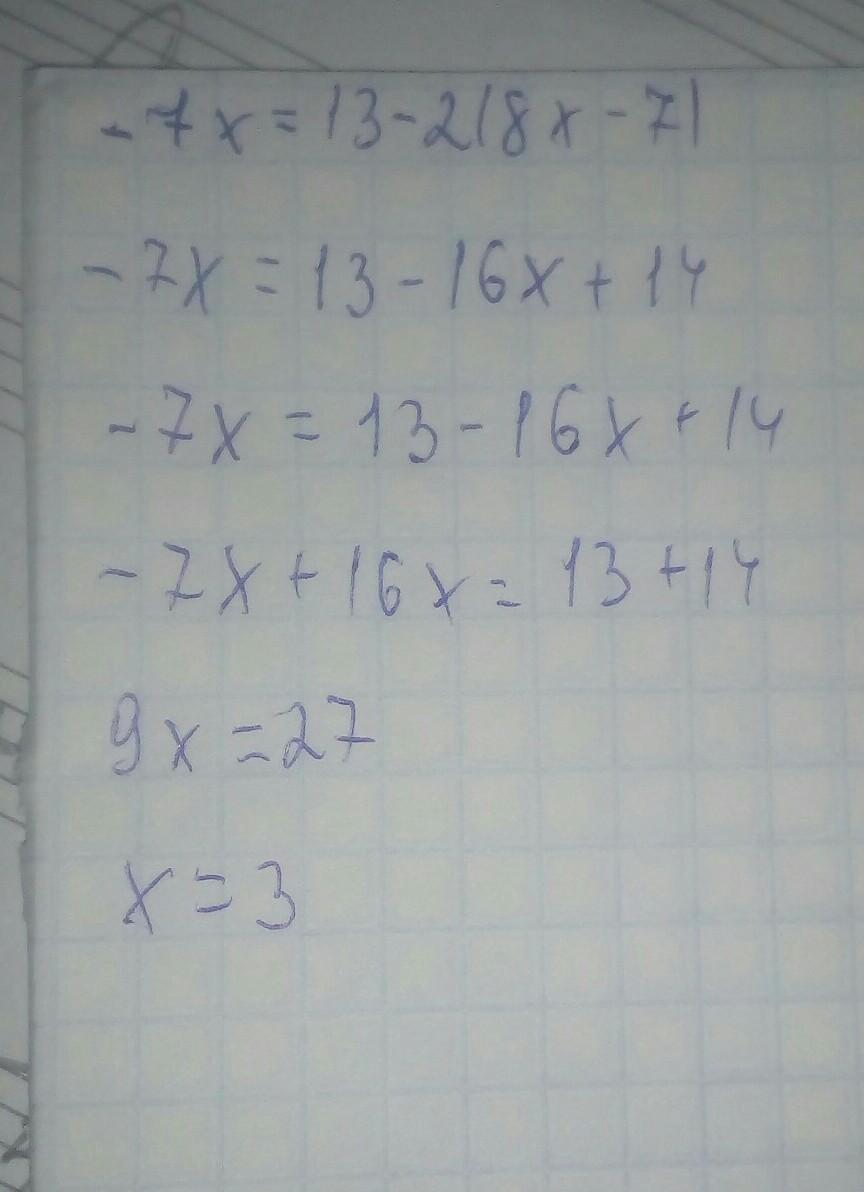 -7x=13-2(8x-7)
-7x=13-16x+14
-7x=13-16x+14
-7x+16x=13+14
9x=27
x=3